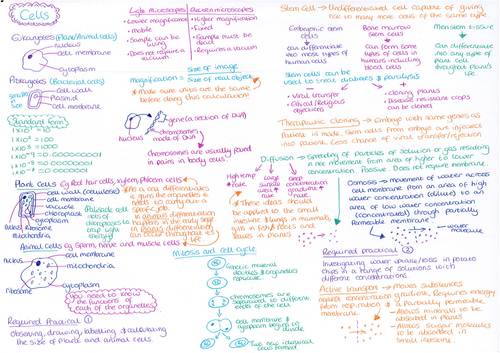 Cells
Eukaryotes (Plant/Animal cells)
nucleus
cell membrane
cytoplasm
Prokaryotes (Bacterial cells)
smaller in size
cell wall
plasmid
cell membrane
Standard form
1x10¹ = 10
1x10² = 100
1x10³ = 1000
Plant Cells Eg Root hair cells, xylem, phloem cells
cell wall (cellulose)
cell membrane
vacuole
chloroplast
cytoplasm
nucleus
ribosome
mitochondria
Muscle cell lots of
Animal cells Eg Sperm, nerve and muscle cells
nucleus
cell membrane
mitochondria
ribosome
cytoplasm
You need to know the functions of each of the organelles
Required Practical ①
observing, drawing, labelling & calculating
the size of plant and animal cells.
Light microscopes
• Lower magnification
• mobile
• Sample can be living
• Does not require a vacuum
Electron microscopes
• Higher magnification
• Fixed
• Sample must be dead
• Requires a vacuum
Magnification = Size of image
Size of real object
* make sure units are the same
before doing this calculation!
gene (a section of DNA)
chromosomes made of DNA
nucleus
chromosomes are usually found
in pairs in body cells.
Mitosis and cell cycle
Genetic material doubles & organelles replicate
chromosomes are separated to different ends of the cell
Cell membrane & cytoplasm begins to divide
Two new identical cells formed
Stem Cell → Undifferentiated cell capable of giving
rise to many more cells of the same type
Embryonic stem cells
Can differentiate into most types of human cells
Bone marrow stem cells
Can form some types of cells in humans including blood cells
Meristem tissue
Can differentiate into any type of plant cell throughout plants life
Stem cells can be used to treat diabetes & paralysis
- Viral transfer
- Ethical/Religious objections
+ Cloning plants
+ Disease resistant crops can be cloned
Therapeutic cloning → Embryo with same genes as
patient is made. Stem cells from embryo are injected
into patient. Less chance of viral transfer/rejection
Diffusion → Spreading of particles of solution or gas resulting
in net movement from area of higher to lower
concentration. Passive. Does not require membrane.
High temp = fast rate
Large surface area = fast rate
Steep concentration gradient = fast rate
* These ideas should
be applied to the small
intestine & lungs in mammals,
gills in fish & roots and
leaves in plants
Osmosis → movement of water across
cell membrane from an area of high
water concentration (dilute) to an
area of low water concentration
(concentrated) through partially
permeable membrane
water molecule
Required practical ②
Investigating water uptake/loss in potato
chips in a range of solutions with
different concentrations.
Active transport → Moves substances
against concentration gradient. Requires energy
from respiration & a partially permeable
membrane.
- Allows minerals to be absorbed in plants
- Allows sugar molecules to be absorbed in small intestine.